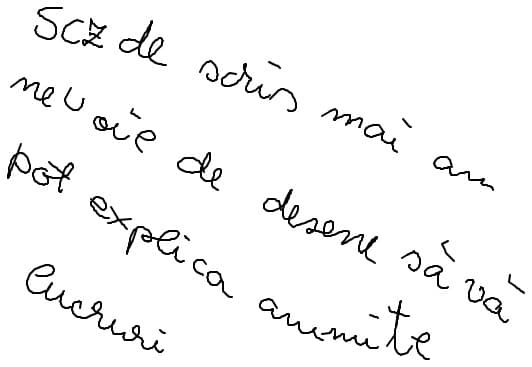 scz de scris mai am
nevoie de desene să vă
pot explica anumite
lucruri